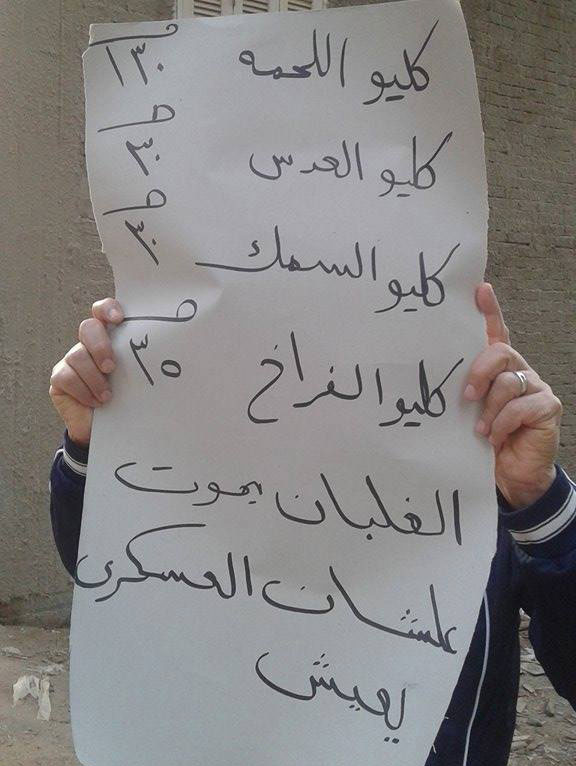 كليو اللحمه ١٣٠ ج
كليو العدس ٣٠ ج
كليو السمك ٣٠ ج
كليو الفراخ ٣٥ ج
الغلبان يموت
علشان العسكرى
يعيش